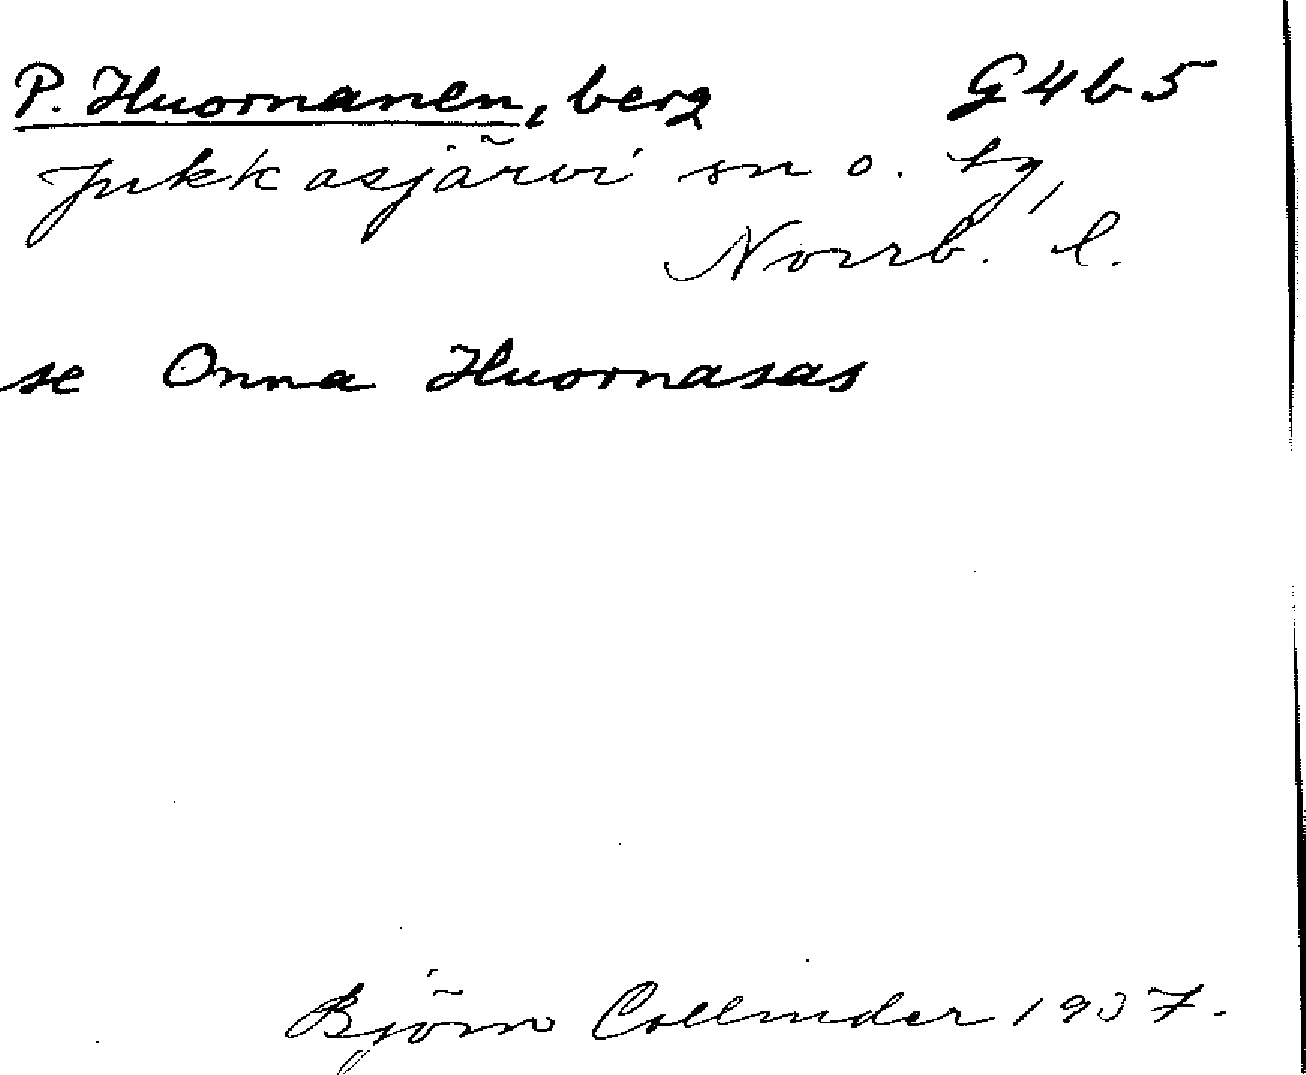 P. Huornanen, berg G4b5
Jukkasjärvi sn o. tg,
Norrb. l.
se Onna Huornasas
Björn Collinder 1937.